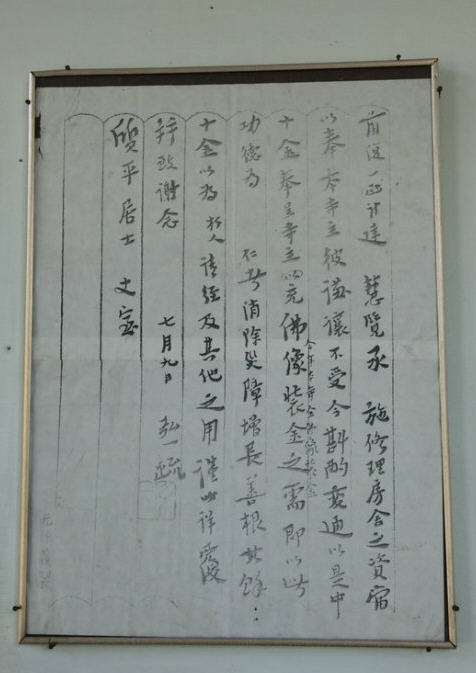 前復一函計達 慧覽承 施修理房舍之資宿
以奉本寺主彼謙讓不受今斟酌變通以是中
十金奉呈寺主以充佛像裝金之需即以此
功德為 仁者消除災障增長善根其餘
十金以為 朽人請經及其他之用謹此詳覆
并致謝忱
質平居士 文室
七月九日 弘一疏